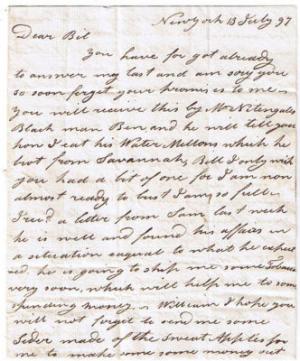 New york 13 July 97
Dear Bil
You have for got already
to answer my last and am sory you
so soon forget your promis to me
You will receive this by Mr Nitengals
Black man Ben and he will tell you
how I eat his Water Mellons which he
brot from Savannah, Bill I only wish
you had a bit of one for I am non
almost ready to bust I am so full
I rec'd a letter from Sam last week
he is well and found his affairs in
a situation eaqueal to what he expect
ed. he is going to ship me some
very soon, which will help me to some
spending money. William I hope you
will not forget to send me some
Sider made of the Sweat Apples for
me to make some more money out